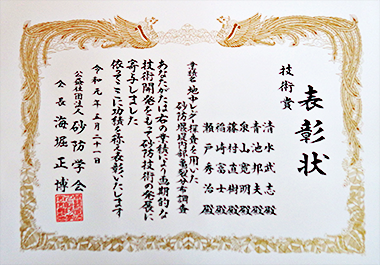 表彰状
技術賞
清水武志殿
青池邦夫殿
泉山寛明殿
藤村直樹殿
稲崎富士殿
瀬戸秀治殿
業績名 地中レーダ探査を用いた
砂防堰堤内部亀裂分布調査
あなたがたは右の業績により画期的な
技術開発をもって砂防技術の発展に
寄与しました
依ってここに功績を称え表彰いたします
令和元年五月二十一日
公益社団法人 砂防学会
会長 海堀正博